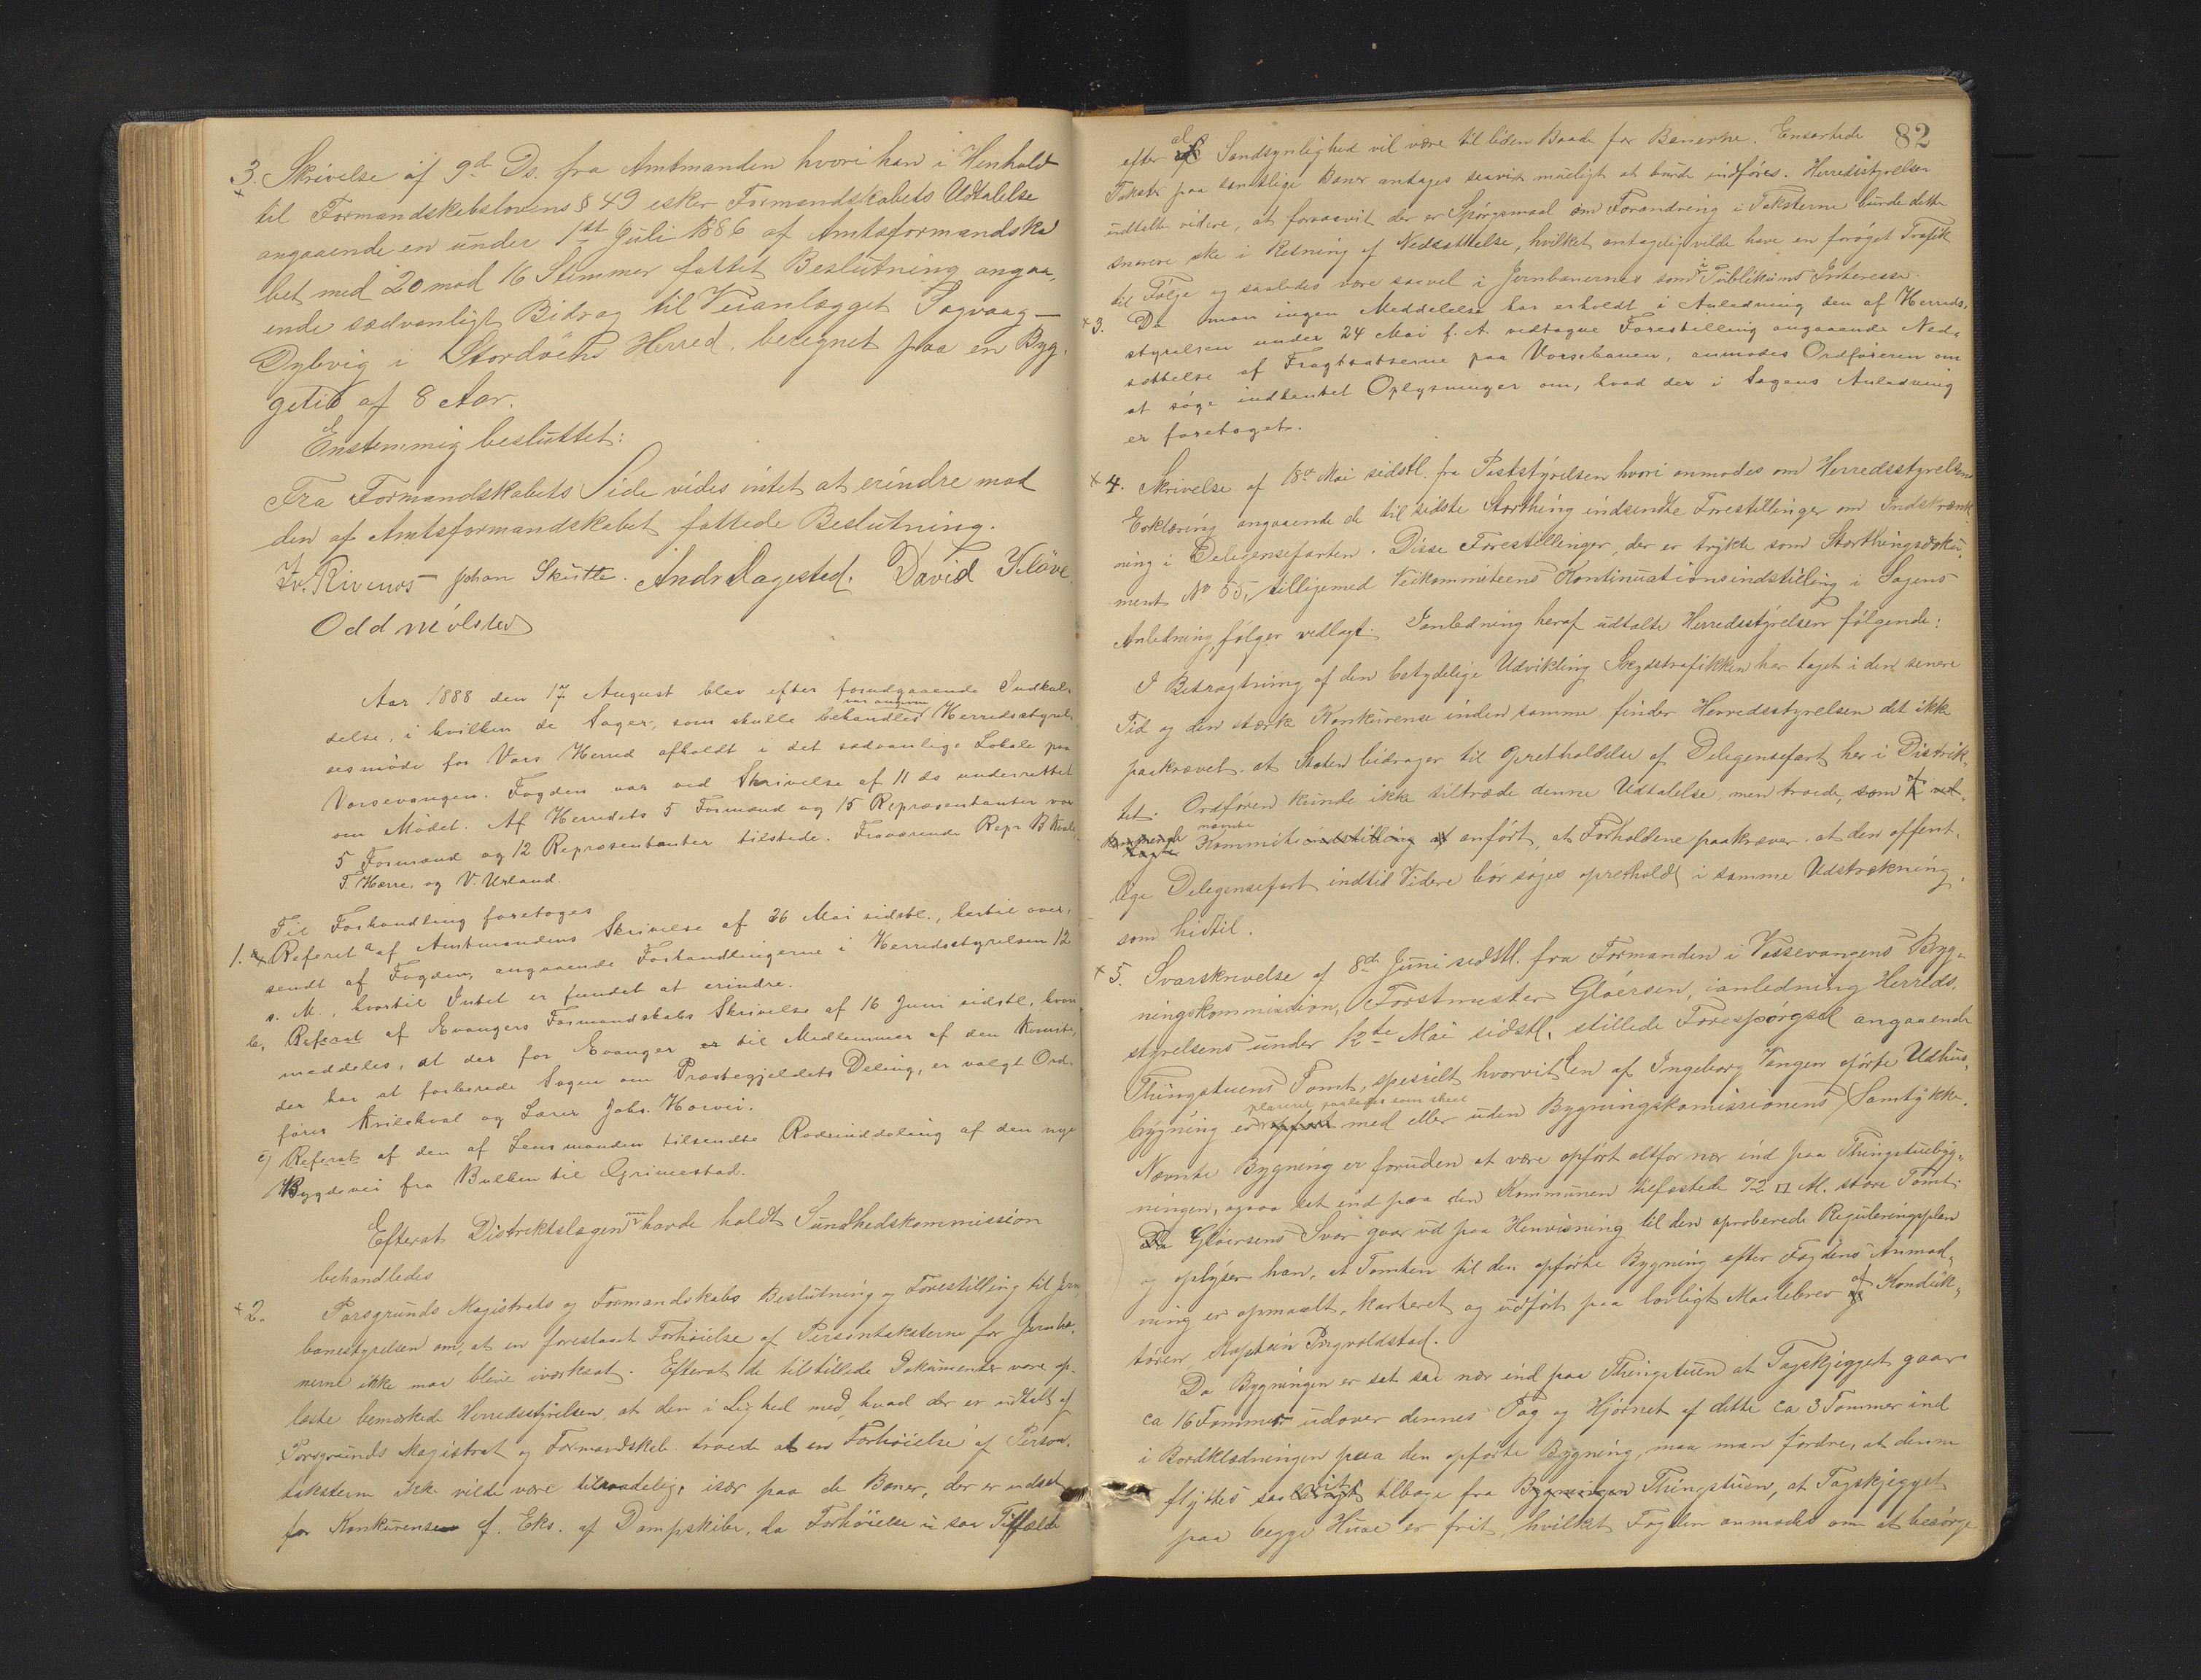 3. Skrivelse af 9d Ds. fra Amtmanden hvori han i Henhold
til Formandskabslovens § 49 esker Formandskabets Udtalelse
angaaende en under 1st Juli 1886 af Amtsformandska
bet med 20 mod 16 Stemmer fattet Beslutning angaa,
ende sædvanligt Bidrag til Veianlægget Sagvaag—
Dybvig i Stordöens Herred, beregnet paa en Byg,
getid af 8 Aar.
Enstemmig besluttet:
Fra Formandskabets Side vides intet at erindre mod
den af Amtsformandskabet fattede Beslutning.
Johan Skutle. Andr Dagestad. David Kløve.
Odd Mølster
Aar 1888 den 17 August blev efter forudgaaende Indkal,
delse, i hvilken de Sager, som skulle behandles var angivne Herredsstyrel,
sesmöde for Vors Herred afholdt i det sædvanlige Lokale paa
Vorsevangen. Fogden var ved Skrivelse af 11 ds underrettet
om Mödet. Af Herredets 5 Formænd og 15 Repræsentanter var
5 Formænd og 12 Repræsentanter tilstede. Fraværende Repr B
T. Hærre, og V. Urland.
Til Forhandling foretoges
1. a Referet af Amtmandens Skrivelse af 26 Mai sidstl., hertil over,
sendt af Fogden, angaaende Forhandlingerne i Herredsstyrelsen 12
s. M., hvortil Intet er fundet at erindre.
b, Referat af Evangers Formandskabs Skrivelse af 16 Juni sidstl, hvori
meddeles, at der for Evanger er til Medlemmer af den Komite,
der har at forberede Sagen om Præstegjeldets Deling, er valgt Ord,
förer Kvilekval og Lærer Johs. Horvei.
c) Referat af den af Lensmanden tilsendte Rodeinddeling af den nye
Bygdevei fra Bulken til Grimestad.
Efterat Distriktslægen nu havde holdt Sundhedskommission
behandledes
2. Porsgrunds Magistrats og Formandskabs Beslutning og Forestilling til Jern
banestyrelsen om, at en foreslaaet Forhöielse af Persontaksterne for Jernba,
nerne ikke maa blive iværksat. Efterat de tilstillede Dokumenter vare op,
læste bemærkede Herredsstyrelsen, at den i Lighed med, hvad der er udtalt af
Porsgrunds Magistrat og Formandskab troede at en Forhöielse af Person,
taksterne ikke vilde være tilraadelig, især paa de Baner, der er udsat
for Konkurense f. Eks. af Dampskibe, da Forhöielse i saa Tilfælde
82
efter al Sandsynlighed vil være til liden Baade for Banerne. Ensartede
Takster paa samtlige Baner antages saavidt muligt at burde indföres. Herredsstyrelsen
udtalte videre, at forsaavidt der er Spörgsmaal om Forandring i Taksterne burde dette
snarere ske i Retning af Nedsættelse, hvilket antagelig vilde have en foröget Trafik
til Fölge og saaledes være saavel i Jernbanernes som i Publikums Interesse.
3. Da man ingen Meddelelse har erholdt i Anledning den af Herreds,
styrelsen under 24 Mai f. A. vedtagne Forestilling angaaende Ned,
sættelse af Fragtsatserne paa Vorsebanen, anmodes Ordföreren om
at söge indhentet Oplysninger om, hvad der i Sagens Anledning
er foretaget.
4. Skrivelse af 18de Mai sidstl. fra Poststyrelsen hvori anmodes om Herredsstyrelsens
Erklæring angaaende de til sidste Storthing indsendte Forestillinger om Indskrænk,
ning i Deligensefarten. Disse Forestillinger, der er trykte som Storthingsdoku,
ment No 55, tilligemed Veikommiteens Kontinuationsindstilling i Sagens
Anledning, fölger vedlagt. Ianledning heraf udtalte Herredsstyrelsen fölgende:
I Betragtning af den betydelige Udvikling Skydstrafikken har taget i den senere
Tid og den stærke Konkurense inden samme, finder Herredsstyrelsen det ikke
paakrævet, at Staten bidrager til Opretholdelse af Deligensefart her i Distrik,
tet. Ordfören kunde ikke tiltræde denne Udtalelse, men troede, som
nævnte Kommite anfört, at Forholdene paakræver, at den offent,
lige Deligensefart indtil Videre bör söges opretholdt i samme Udstrækning
som hidtil.
5. Svarskrivelse af 8de Juni sidstl. fra Formanden i Vossevangens Byg,
ningskommission, Forstmester Gløersen, ianledning Herreds,
styrelsens under 12te Mai sidstl. stillede Forespörgsel angaaende
Thingstuens Tomt, spesielt hvorvidt en af Ingeborg Vangen opförte Udhus,
bygning er placeret paa saadan med eller uden Bygningskomissionens Samtykke.
Nævnte Bygning er foruden at være opfört altfor nær ind paa Thingstuebyg,
ningen, ogsaa sat ind paa den Kommunen tilfæstede 72 □ Al. store Tomt.
Gløersens Svar gaar ud paa Henvisning til den aproberede Reguleringsplan
og oplyser han, at Tomten til den opförte Bygning efter Fogdens Anmod,
ning er opmaalt, karteret og udfört paa lovligt Maalebrev af Konduk,
tören, Kaptein Yngvoldstad.
Da Bygningen er sat saa nær ind paa Thingstuen at Tagskjægget gaar
ca 16 Tommer udover dennes Tag og Hjörnet af dette ca 3 Tommer ind
i Bordklædningen paa den opförte Bygning, maa man fordre, at denne
flyttes saa vidt tilbage fra Bygningen Thingstuen, at Tagskjægget
paa begge Huse er frit, hvilket Fogden anmodes om at besörge